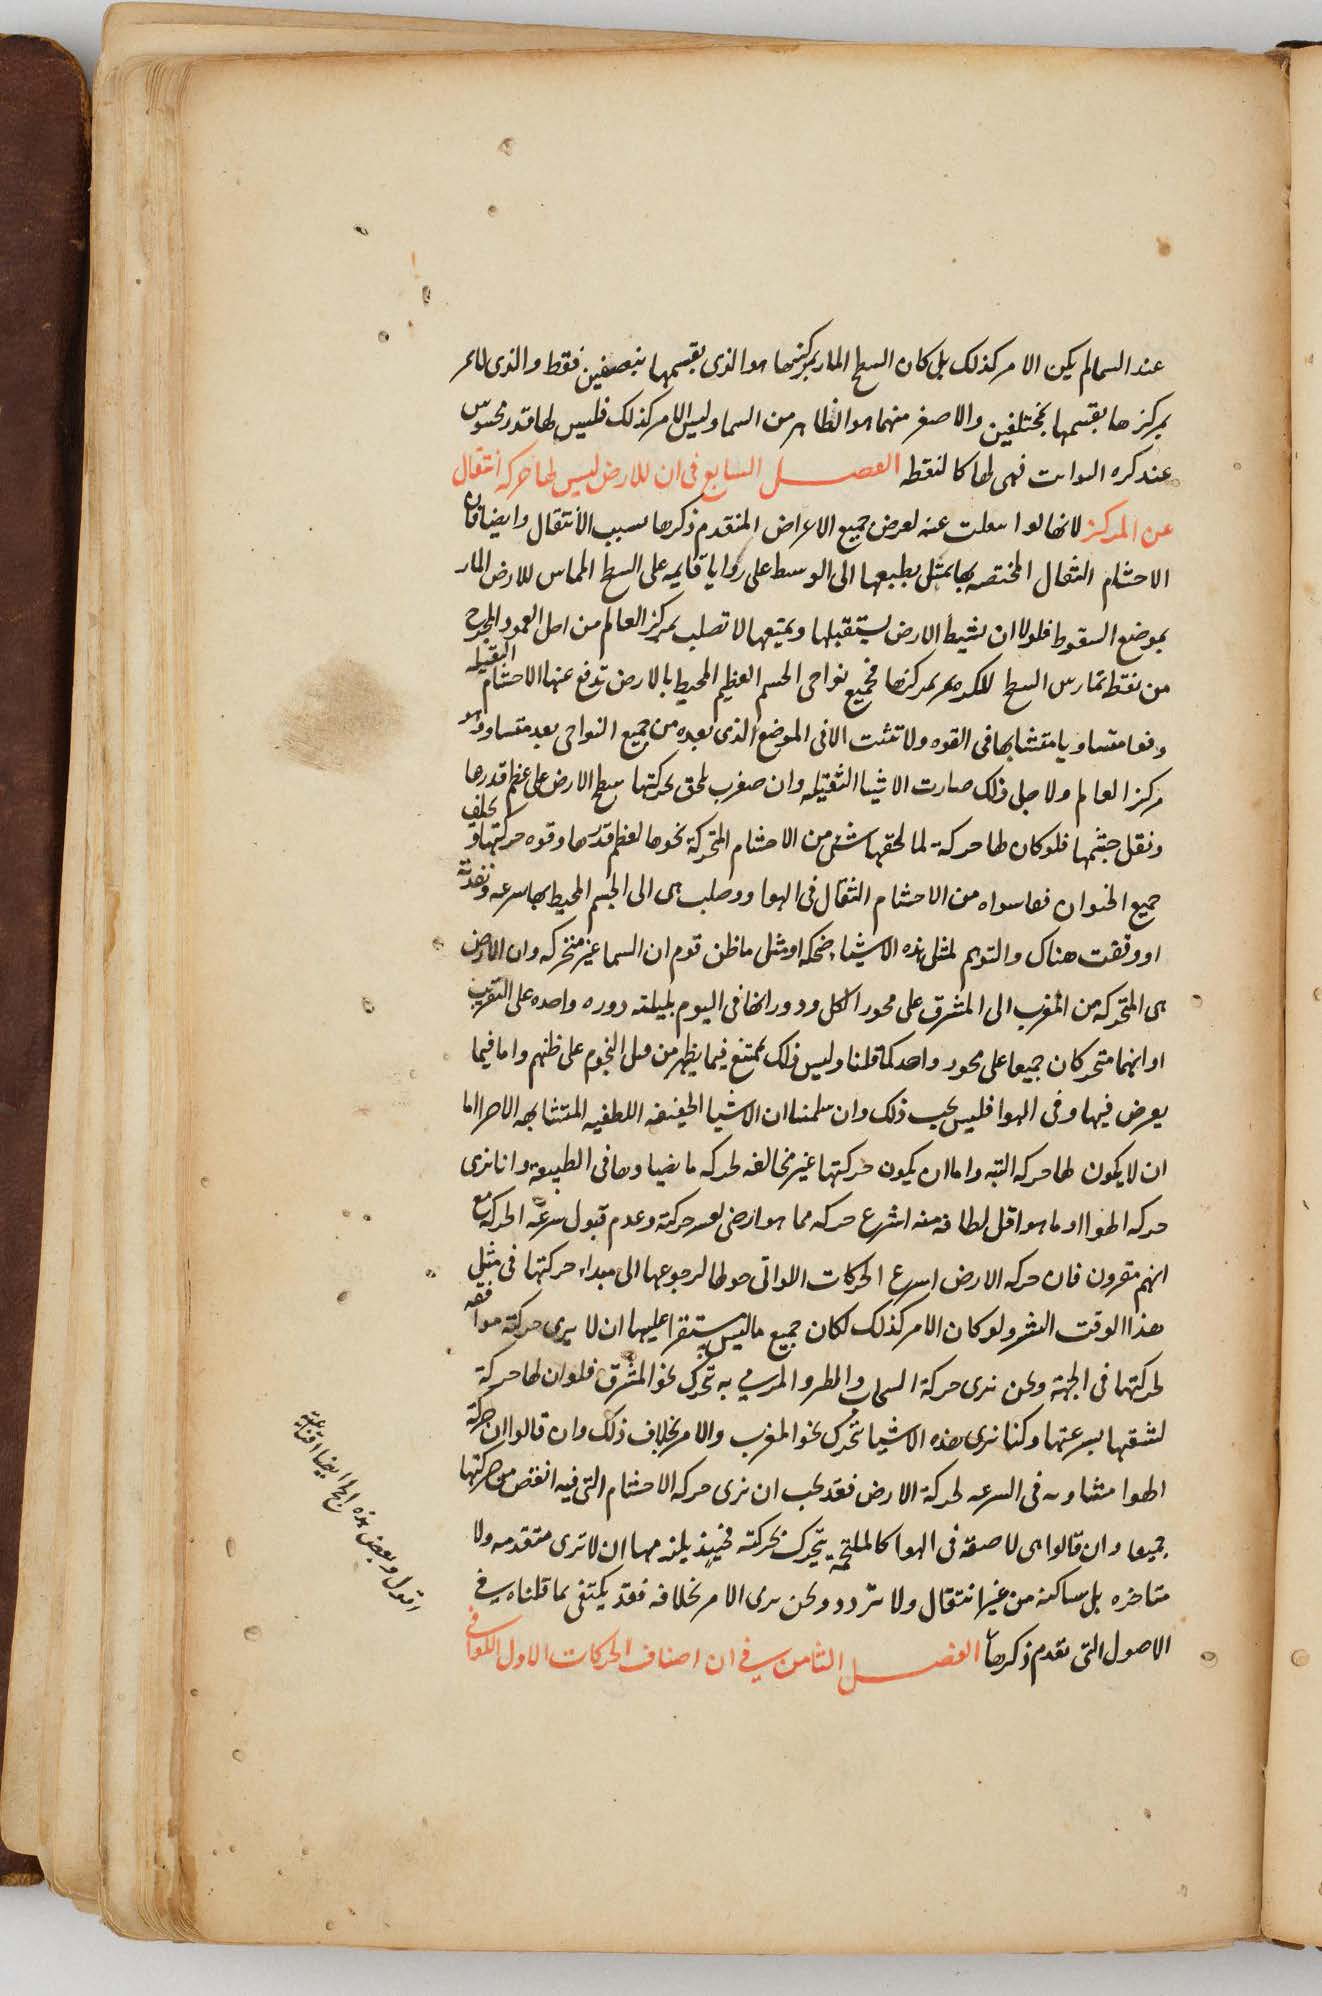 عند السما لم يكن الامر كذلك بل كان السطح المار بمركزها هو الذى يقسمها بنصفين فقط والذى لا يمر
بمركزها يقسمها بمختلفين والاصغر منهما هو الظاهر من السما وليس الامر كذلك فليس لها قدر محسوس
عند كره الثوابت فهى لها كالنقطه الفصل السابع فى ان للارض ليس لها حركه انتقال
عن المركز لانها لو انتقلت عنه لعرض جميع الاعراض المتقدم ذكرها بسبب الانتقال وايضا فان
الاجسام الثقال المختصه بها تميل بطبعها الى الوسط على زوايا قايمه على السطح المماس للارض المار
بموضع السقوط فلولا ان بسيط الارض يستقبلها ويمنعها لاتصلت بمركز العالم من اجل العمود المخرج
من نقط تماس السطح للكره يمر بمركزها فجميع نواحى الجسم العظيم المحيط بالارض تدفع عنها الاجسام الثقيله
دفعا متساويا متشابها فى القوه ولا تثبت الا فى الموضع الذى بعده من جميع النواحى بعد متساو وهو
مركز العالم ولاجل ذلك صارت الاشيا الثقيله وان صغرت تلحق بحركتها سطح الارض على عظم قدرها
وثقل جسمها فلو كان لها حركة لما لحقها شى من الاجسام المتحركة نحوها لعظم قدرها وقوه حركتها وتخلف
جميع الحيوان فما سواه من الاجسام الثقال فى الهوا ووصلت هى الى الجسم المحيط بها بسرعه ونفذته
او وقفت هناك والتوهم لمثل هذه الاشياء ضحكه او مثل ما ظن قوم ان السما غير متحركه وان الارض
هى المتحركه من المغرب الى المشرق على محور الكل ودورانها فى اليوم بليلته دوره واحده على التقريب
او انهما متحركان جميعا على محور واحد كما قلنا وليس ذلك بممتنع فيما يظهر من قبل النجوم على ظنهم واما فيما
يعرض فيها وفى الهوا فليس يجب ذلك وان سلمنا ان الاشيا الخفيفه اللطفيه المتشابهه الاجزا اما
ان لا يكون لها حركه البته واما ان يكون حركتها غير مخالفه لحركه ما يضادها فى الطبيعه وانا نرى
حركه الهوا او ما هو اقل لطافه منه اسرع حركه مما هو ارضى لعسر حركته وعدم قبول سرعة الحركه مع
انهم مقرون فان حركه الارض اسرع الحركات اللواتى حولها لرجوعها الى مبداء حركتها فى مثل
هذا الوقت اليسير ولو كان الامر كذلك لكان جميع ما ليس مستقرا عليها ان لا يرى حركته موافقه
لحركتها فى الجهة ونحن نرى حركة السحاب والطير والمرمي به تتحرك نحو المشرق فلو ان لها حركة
لسبقتها بسرعتها وكنا نرى هذه الاشيا تتحرك نحو المغرب والامر بخلاف ذلك وان قالوا ان حركة
الهوا مساويه فى السرعه لحركة الارض فقد يجب ان نرى حركه الاجسام التى فيه انقص من حركتها
جميعا وان قالوا هى لاصقة فى الهوا كالملتحمة يتحرك بحركته فحينئذ يلزمها ان لا ترى متقدمه ولا
متاخره بل ساكنه من غير انتقال ولا تردد ونحن نرى الامر بخلافه فقد يكتفى بما قلناه فى
الاصول التى تقدم ذكرها الفصل الثامن فى ان اصناف الحركات الاول اللواتى
اقول وبعض هذه الحجج ايضا اقناعية